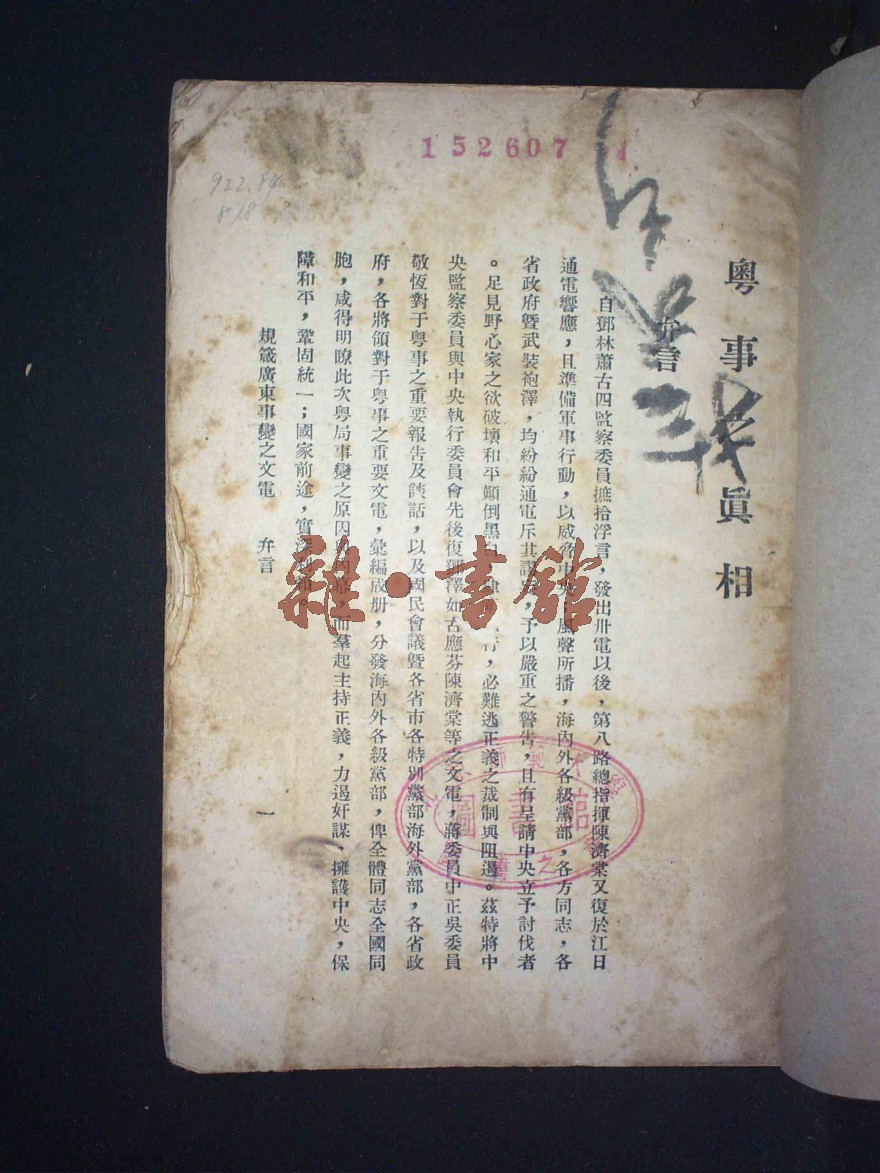 152607
922.84
818
粵事之眞相
弁言
自鄧林蕭古四監察委員摭拾浮言，發出卅電以後，第八路總指揮陳濟棠又復於江日
通電響應，且準備軍事行動，以威脅中央，風聲所播，海內外各級黨部，各方同志，各
省政府暨武裝袍澤，均紛紛通電斥其謬，予以嚴重之警告，且有呈請中央立予討伐者
。足見野心家之欲破壞和平顚倒黑白，必難逃正義之裁制與阻遏。茲特將中
央監察委員與中央執行委員會先後復鄧澤如古應芬陳濟棠等之文電，蔣委員中正吳委員
敬恆對于粵事之重要報告及談話，以及國民會議暨各省市各特別黨部海外黨部，各省政
府，各將領對于粵事之重要文電，彙編成册，分發海內外各級黨部，俾全體同志全國同
胞，咸得明瞭此次粵局事變之原因與內幕，而羣起主持正義，力遏奸謀、擁護中央，保
障和平，鞏固統一；國家前途，實深利賴。
規箴廣東事變之文電　弁言
一
雜·書館
圖書館